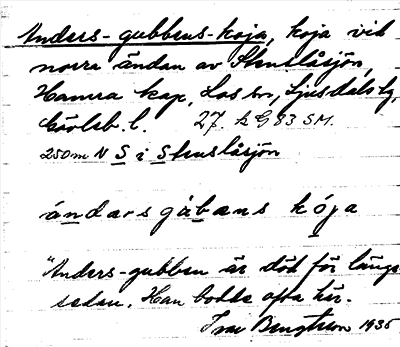 Anders-gubbens-koja, koja vid
norra ändan av Stenslåsjön,
Hamra kap, Los sn, Ljusdals tg,
Gävleb. l. 27. L G 83 SM.
250m N S i Stenslåsjön
ándarsgùbens kója
"Anders-gubben är död för länge
sedan. Han bodde ofta här.
Bengtsson 1935